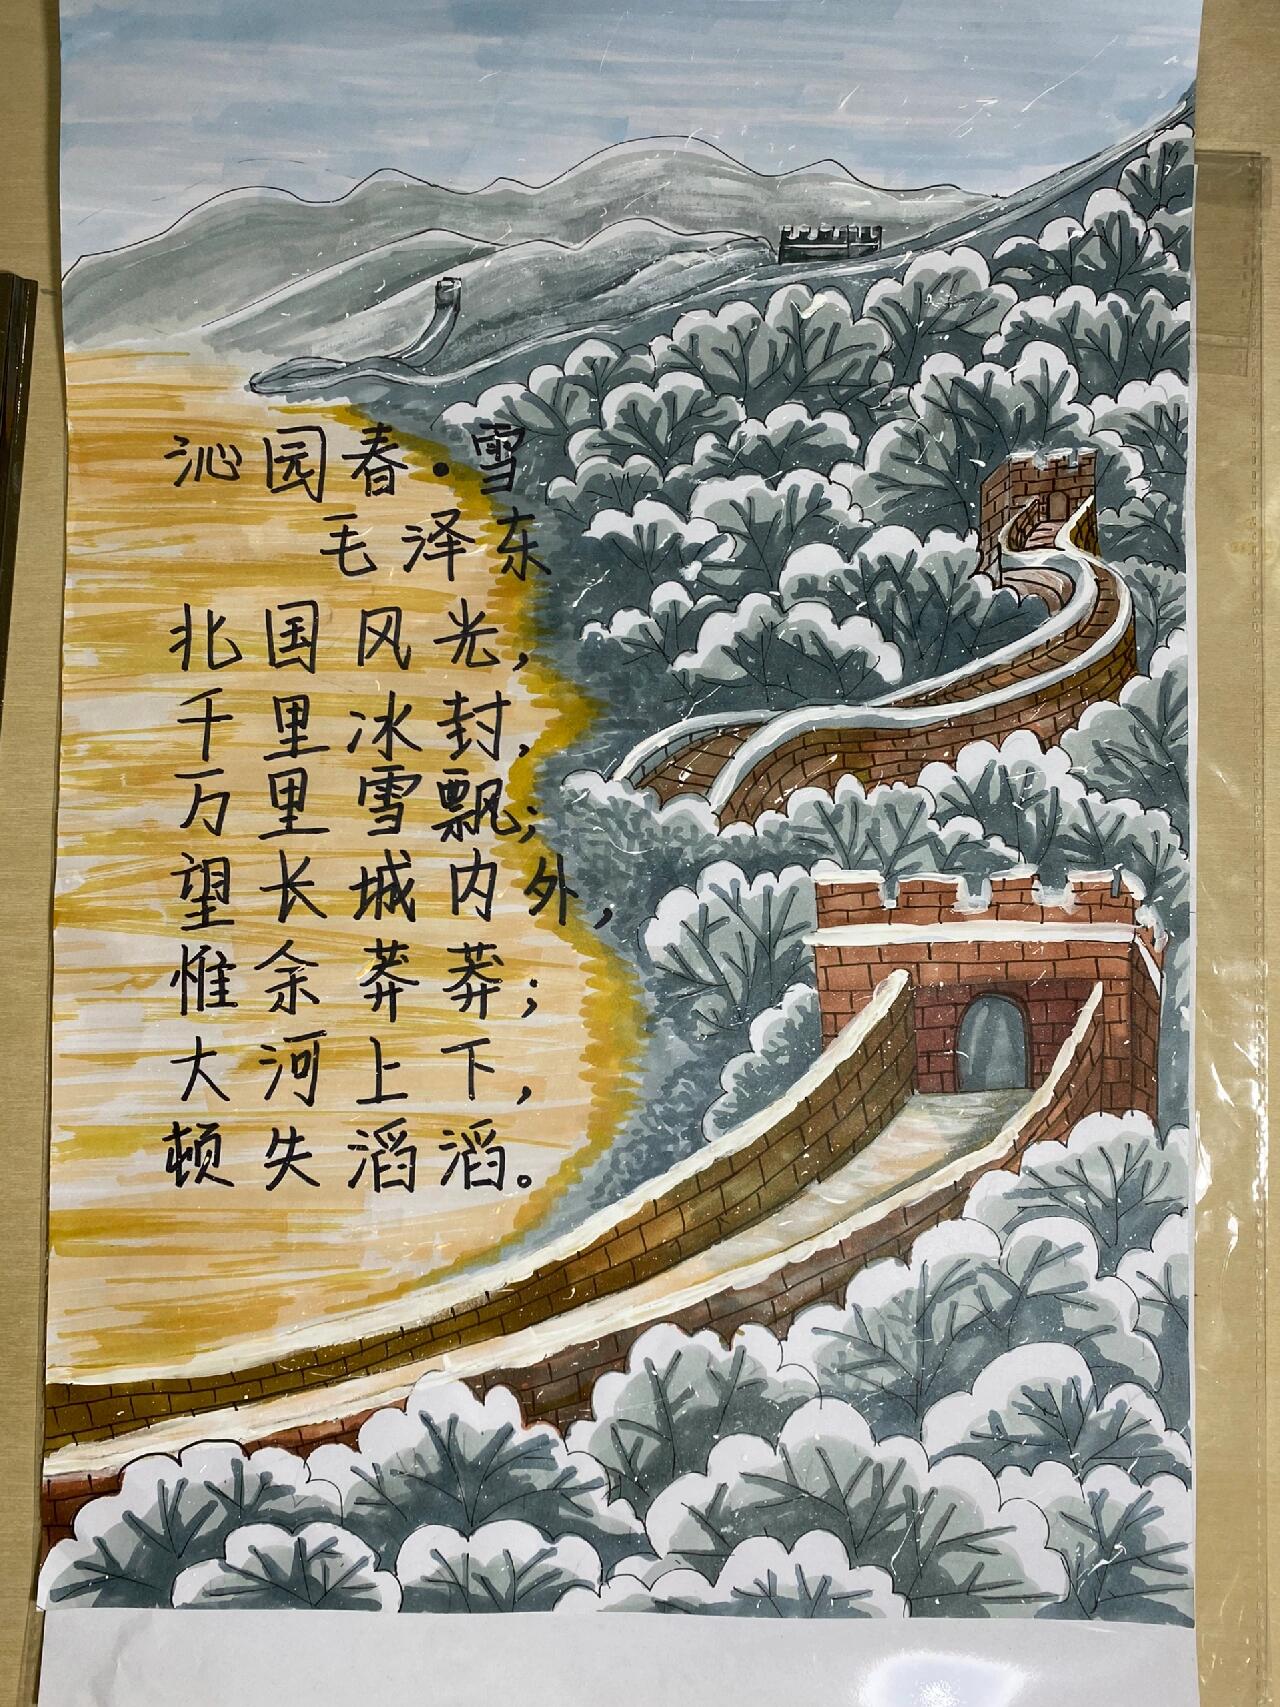 沁园春·雪
毛泽东
北国风光,
千里冰封,
万里雪飘;
望长城内外,
惟余莽莽;
大河上下,
顿失滔滔。